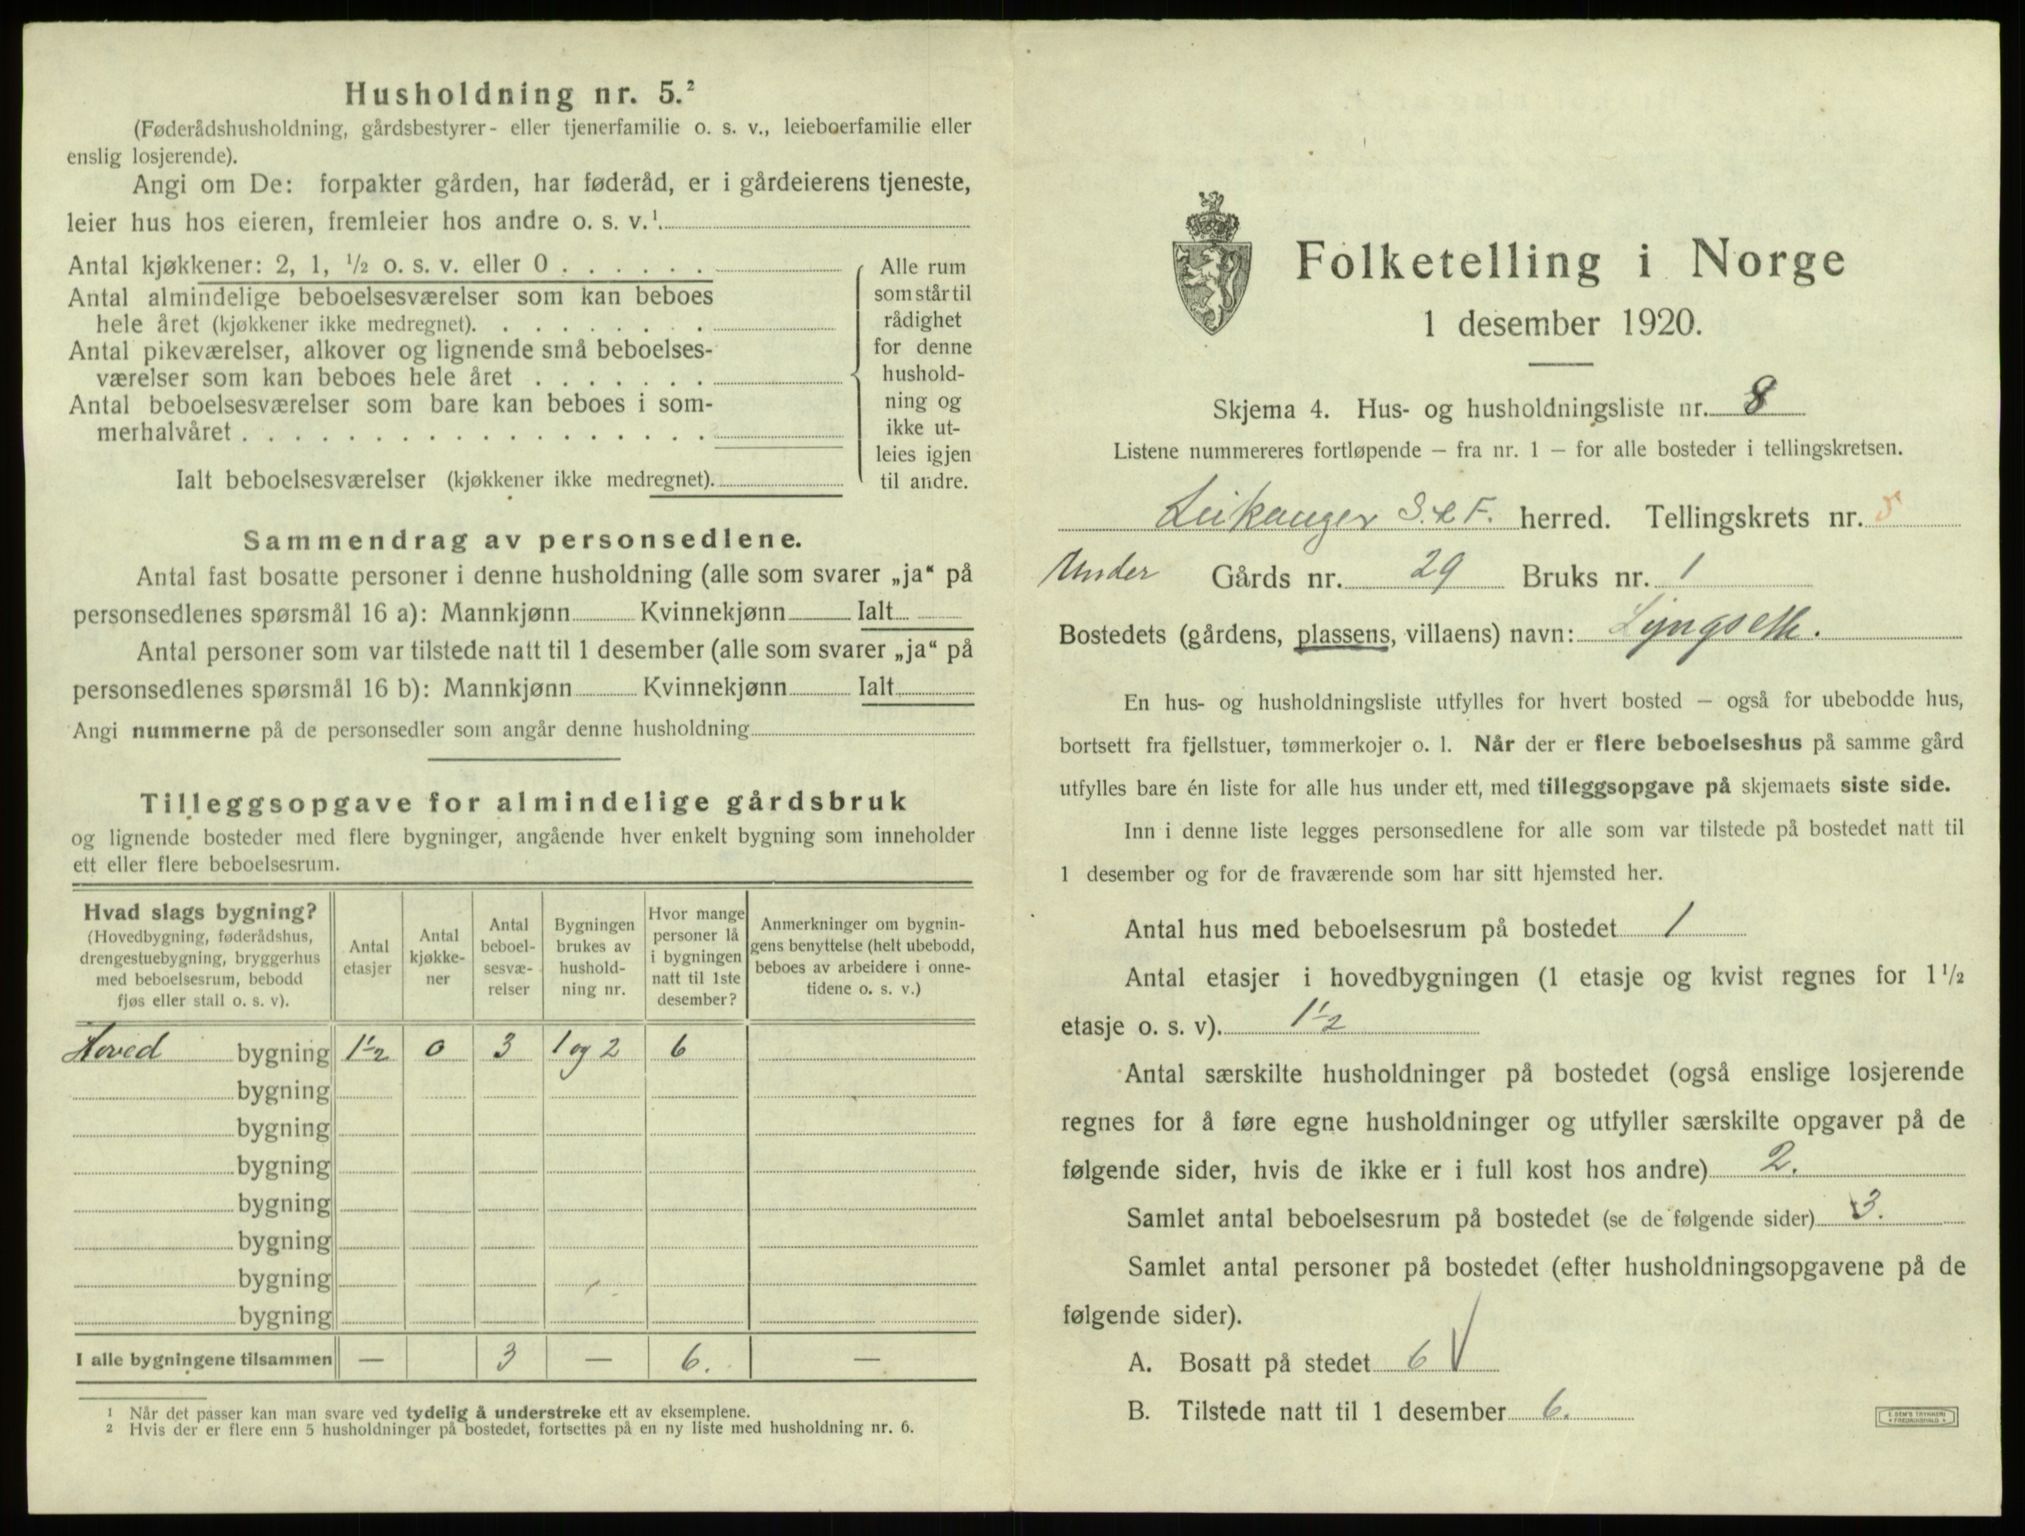 Husholdning nr. 5.²
(Føderådshusholdning, gårdsbestyrer- eller tjenerfamilie o. s. v., leieboerfamilie eller
enslig losjerende).
Angi om De: forpakter gården, har føderåd, er i gårdeierens tjeneste,
leier hus hos eieren, fremleier hos andre o. s. v.¹
Antal kjøkkener: 2, 1, ½ o. s. v. eller 0
Antal almindelige beboelsesværelser som kan beboes
hele året (kjøkkener ikke medregnet)
Antal pikeværelser, alkover og lignende små beboelses-
værelser som kan beboes hele året
Antal beboelsesværelser som bare kan beboes i som-
merhalvåret
Ialt beboelsesværelser (kjøkkener ikke medregnet)
Alle rum
som står til
rådighet
for denne
hushold-
ning og
ikke ut-
leies igjen
til andre.
Sammendrag av personsedlene.
Antal fast bosatte personer i denne husholdning (alle som svarer „ja“ på
personsedlenes spørsmål 16 a): Mannkjønn Kvinnekjønn Ialt
Antal personer som var tilstede natt til 1 desember (alle som svarer „ja“ på
personsedlenes spørsmål 16 b): Mannkjønn Kvinnekjønn Ialt
Angi nummerne på de personsedler som angår denne husholdning
Tilleggsopgave for almindelige gårdsbruk
og lignende bosteder med flere bygninger, angående hver enkelt bygning som inneholder
ett eller flere beboelsesrum.
Hvad slags bygning?
(Hovedbygning, føderådshus,
drengestuebygning, bryggerhus
med beboelsesrum, bebodd
fjøs eller stall o. s. v).
Antal
etasjer
Antal
kjøkke-
ner
Antal
beboel-
sesvæ-
relser
Bygningen
brukes av
hushold-
ning nr.
Hvor mange
personer lå
i bygningen
natt til 1ste
desember?
Anmerkninger om bygnin-
gens benyttelse (helt ubebodd,
beboes av arbeidere i onne-
tidene o. s. v.)
Hoved bygning 1½ 0 3 1 og 2 6
bygning
bygning
bygning
bygning
bygning
bygning
bygning
I alle bygningene tilsammen — 3 — 6. —
¹ Når det passer kan man svare ved tydelig å understreke ett av eksemplene.
² Hvis der er flere enn 5 husholdninger på bostedet, fortsettes på en ny liste med husholdning nr. 6.
Folketelling i Norge
1 desember 1920.
Skjema 4. Hus- og husholdningsliste nr. 8
Listene nummereres fortløpende – fra nr. 1 – for alle bosteder i tellingskretsen.
Leikanger S. & F. herred. Tellingskrets nr. 5
Under Gårds nr. 29 Bruks nr. 1
Bostedets (gårdens, plassens, villaens) navn: Lyngseth.
En hus- og husholdningsliste utfylles for hvert bosted – også for ubebodde hus,
bortsett fra fjellstuer, tømmerkojer o. l. Når der er flere beboelseshus på samme gård
utfylles bare én liste for alle hus under ett, med tilleggsopgave på skjemaets siste side.
Inn i denne liste legges personsedlene for alle som var tilstede på bostedet natt til
1 desember og for de fraværende som har sitt hjemsted her.
Antal hus med beboelsesrum på bostedet 1
Antal etasjer i hovedbygningen (1 etasje og kvist regnes for 1 ½
etasje o. s. v). 1½
Antal særskilte husholdninger på bostedet (også enslige losjerende
regnes for å føre egne husholdninger og utfyller særskilte opgaver på de
følgende sider, hvis de ikke er i full kost hos andre) 2.
Samlet antal beboelsesrum på bostedet (se de følgende sider) 3.
Samlet antal personer på bostedet (efter husholdningsopgavene på de
følgende sider).
A. Bosatt på stedet 6 √
B. Tilstede natt til 1 desember 6.
E. SEM'S TRYKKERI
FREDRIKSHALD